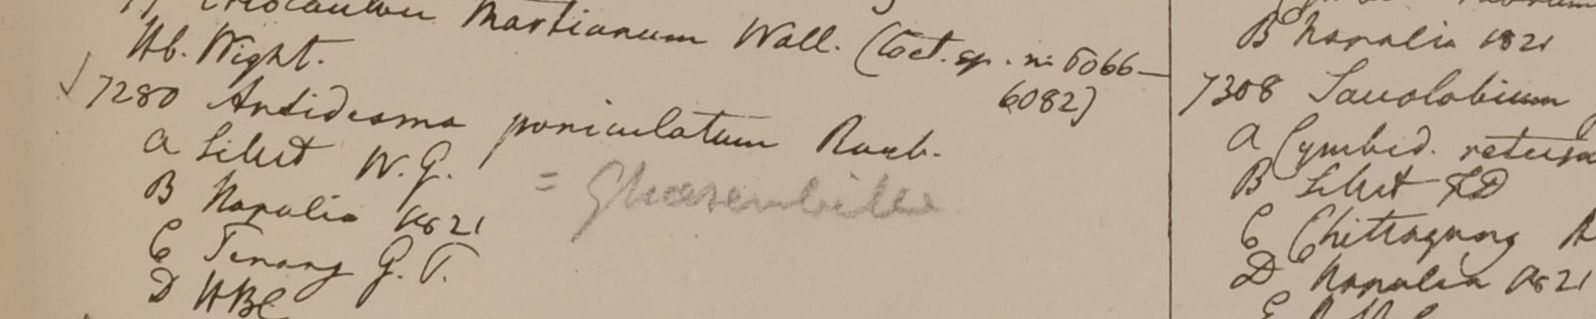 Martianum Wall. (Cat. sp. n. 6066–
6082)
Hb. Wight.
7280 Antidesma paniculatum Roxb.
a Silhet W.G.
B Napalia 1821
= Ghaesembilla
C Penang G.P.
D HBC
B Napalia 1821
7308 Saccolabium
a Cymbid. retusu
B Silhet FD
C Chittagong
D Napalia 1821